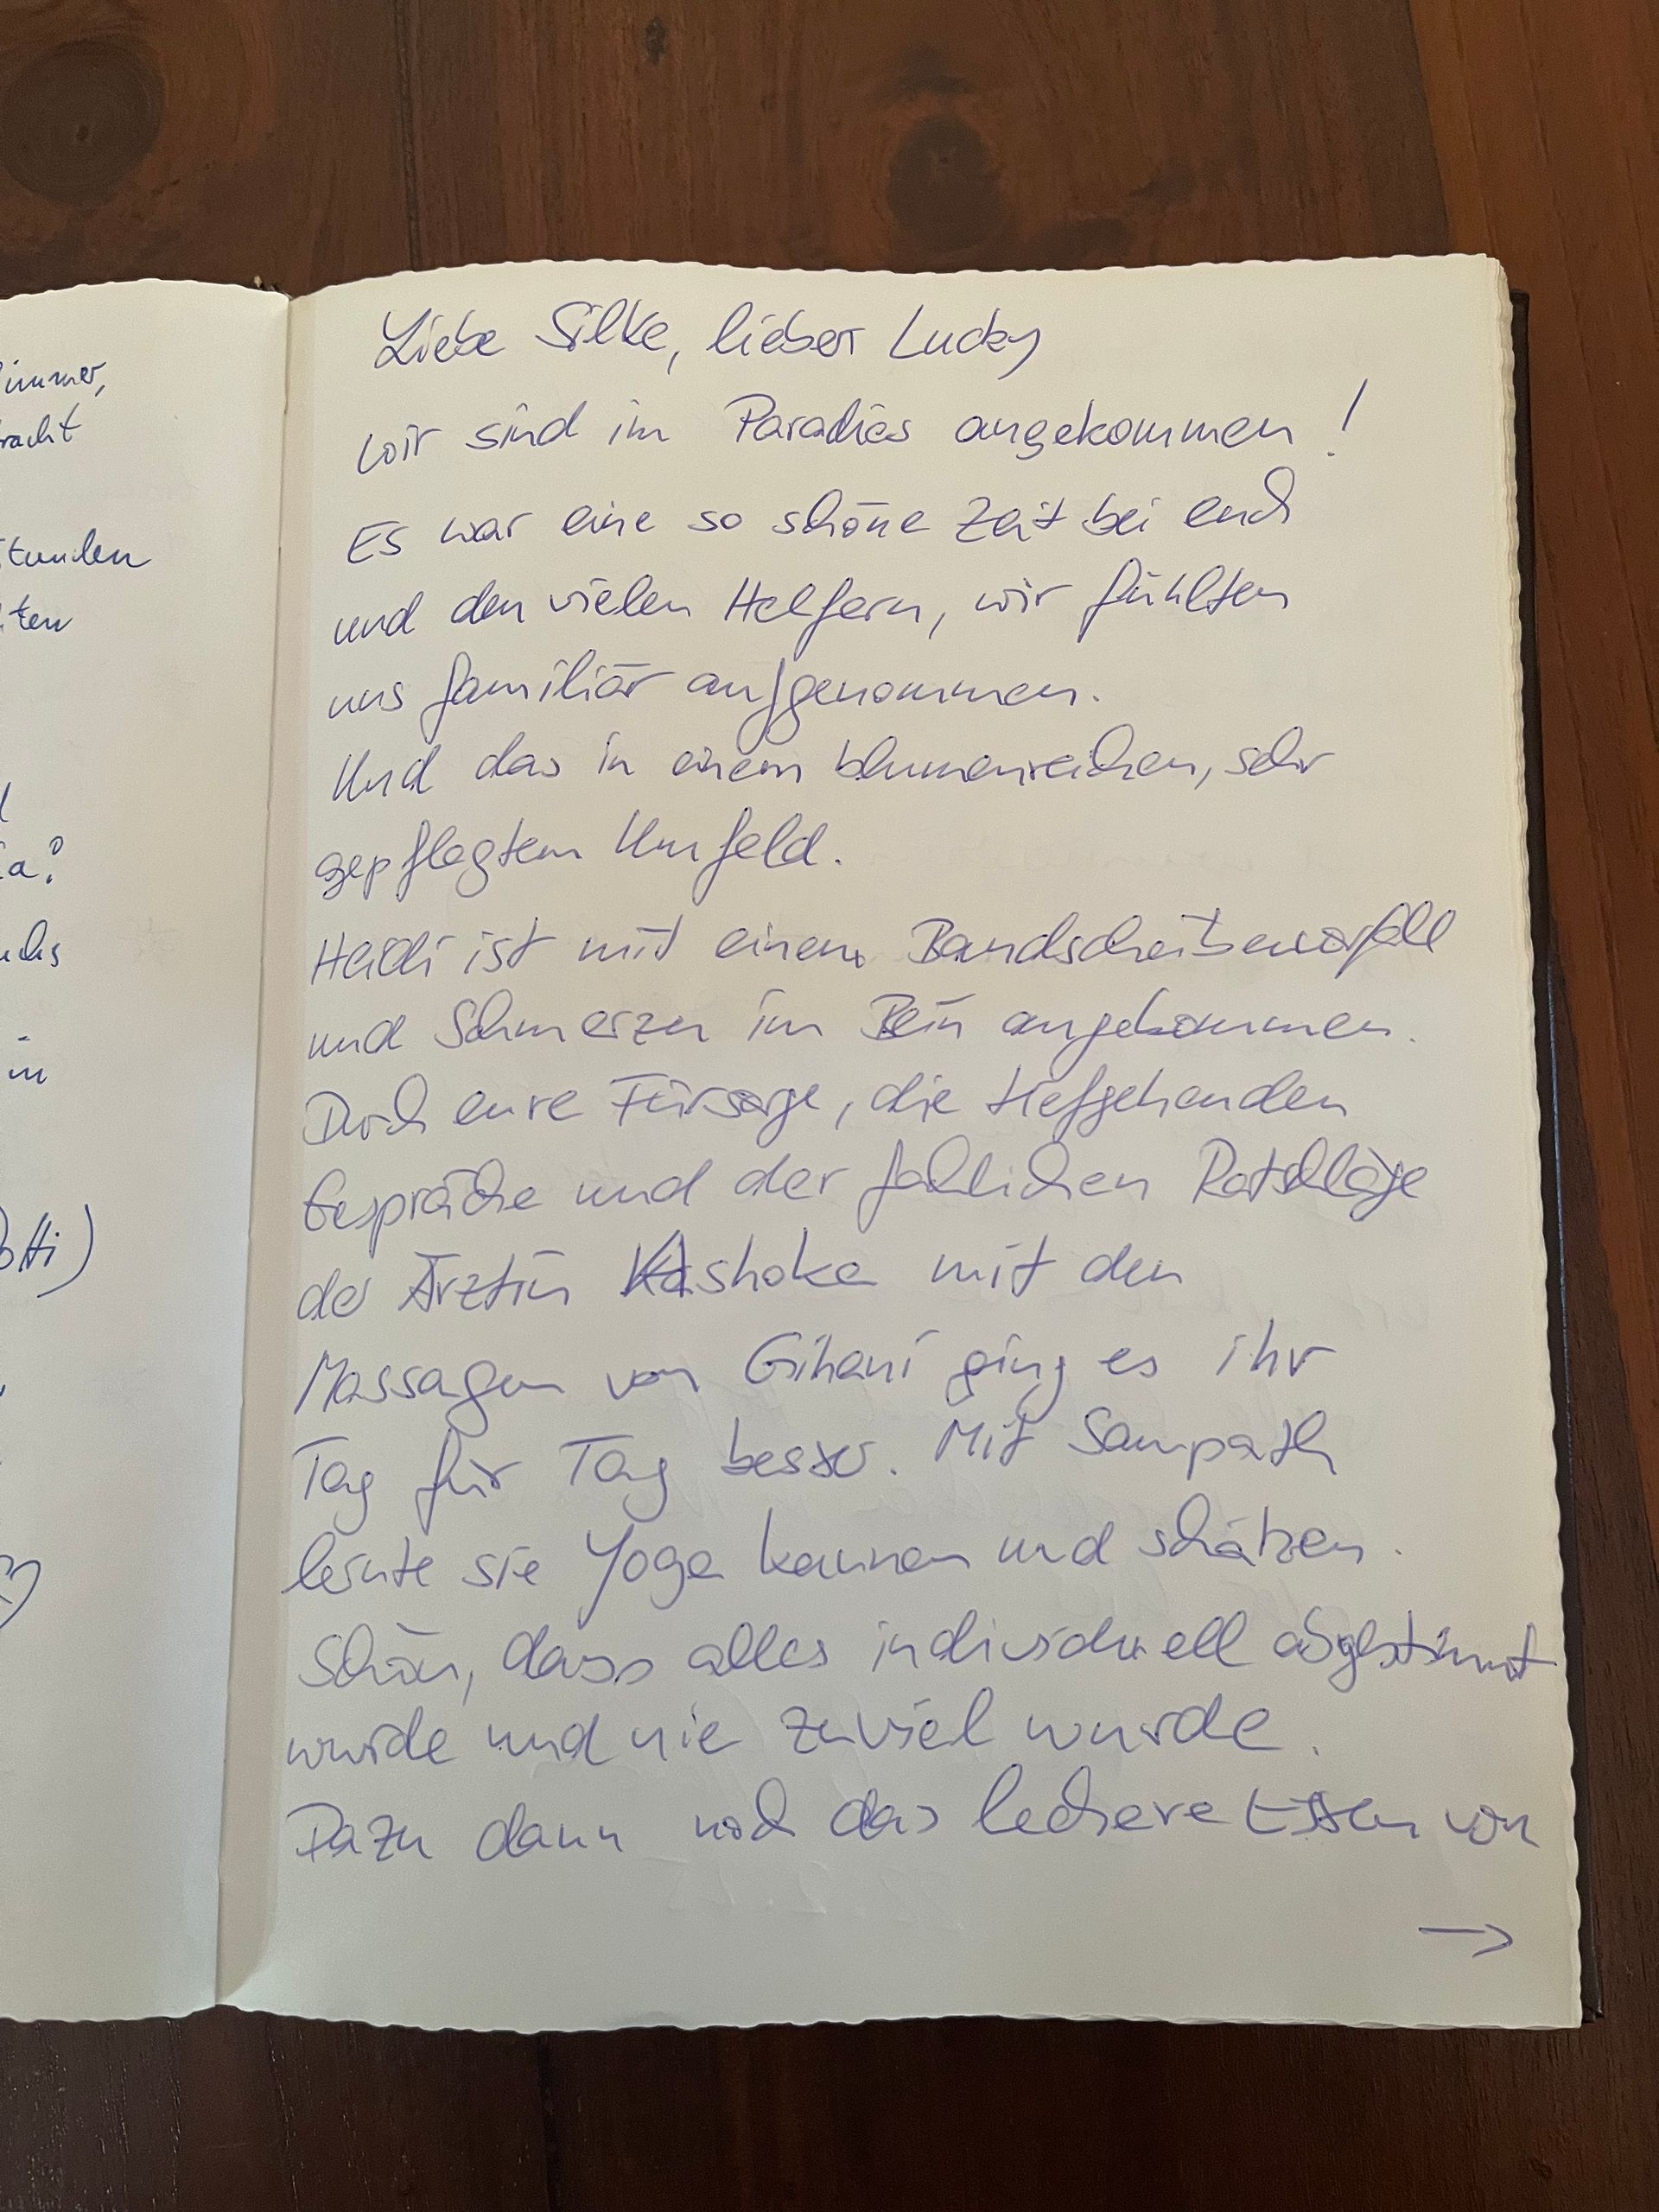 immer,
racht
tunden
ten
a?
uchs
in
otti)
Liebe Silke, lieber Lucky
wir sind im Paradies angekommen!
Es war eine so schöne Zeit bei euch
und den vielen Helfern, wir fühlten
uns familiär aufgenommen.
Und das in einem blumenreichen, sehr
gepflegtem Umfeld.
Heidi ist mit einem Bandscheibenvorfall
und Schmerzen im Bein angekommen.
Durch eure Fürsorge, die tiefgehenden
Gespräche und der fachlichen Ratschläge
der Ärztin Ashoka mit den
Massagen von Gihani ging es ihr
Tag für Tag besser. Mit Sampath
lernte sie Yoga kennen und schätzen.
Schön, dass alles individuell abgestimmt
wurde und nie zuviel wurde.
Dazu dann noch das leckere Essen von
→